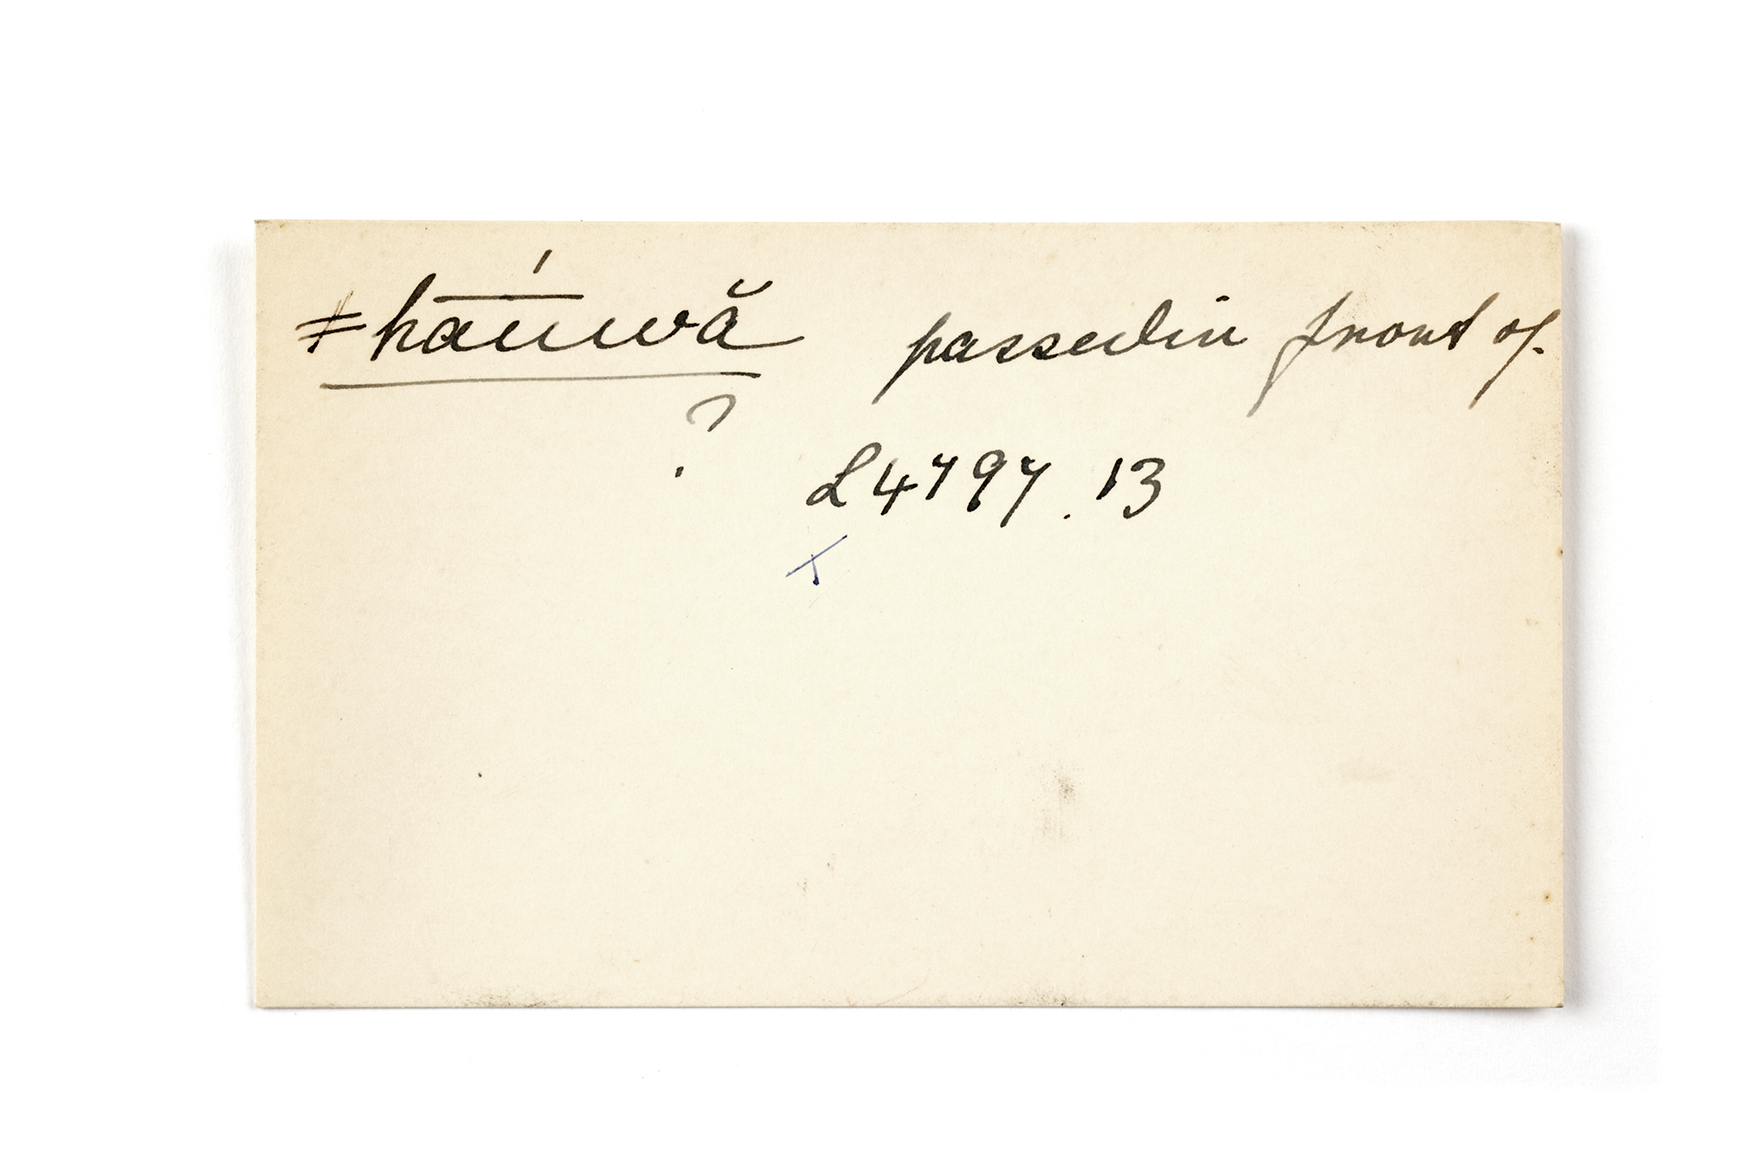 ǂhā́uwă passed in front of.
?
L4797.13